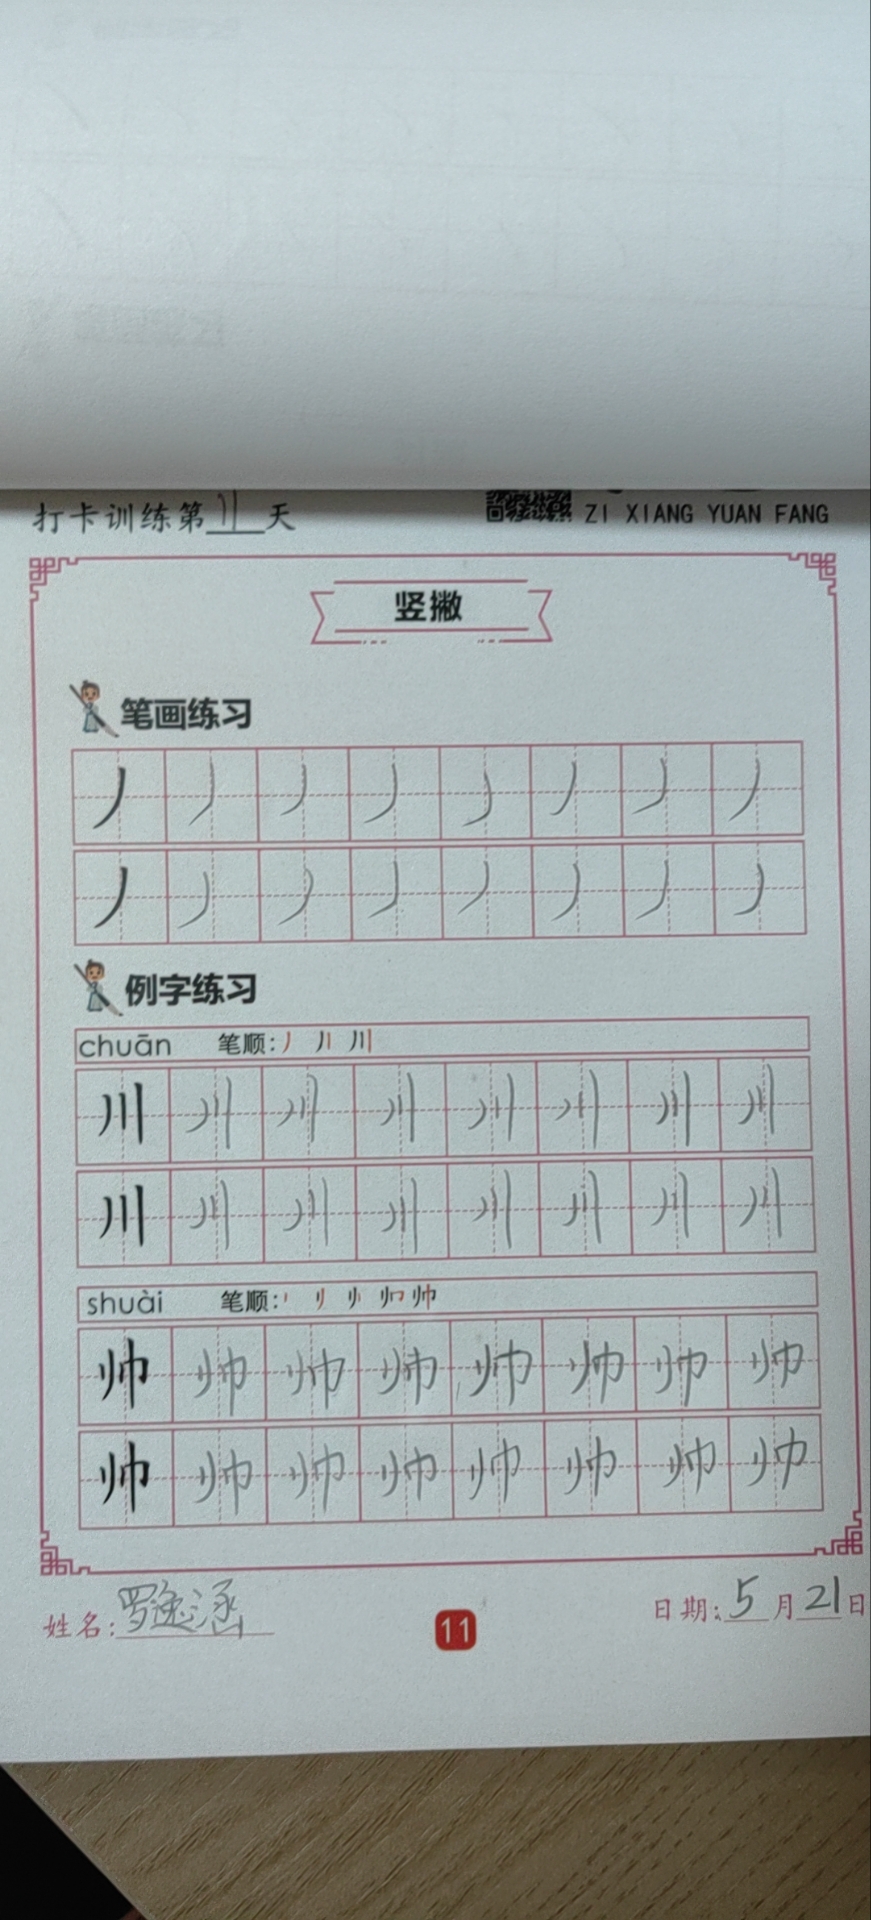 打卡训练第11天
ZI XIANG YUAN FANG
竖撇
笔画练习
丿 丿 丿 丿 丿 丿 丿 丿
丿 丿 丿 丿 丿 丿 丿 丿
例字练习
chuān 笔顺: 丿 丿丨 川
川 川 川 川 川 川 川 川
川 川 川 川 川 川 川 川
shuài 笔顺:
帅 帅 帅 帅 帅 帅 帅 帅
帅 帅 帅 帅 帅 帅 帅 帅
姓名:罗逸涵
11
日期:5月21日